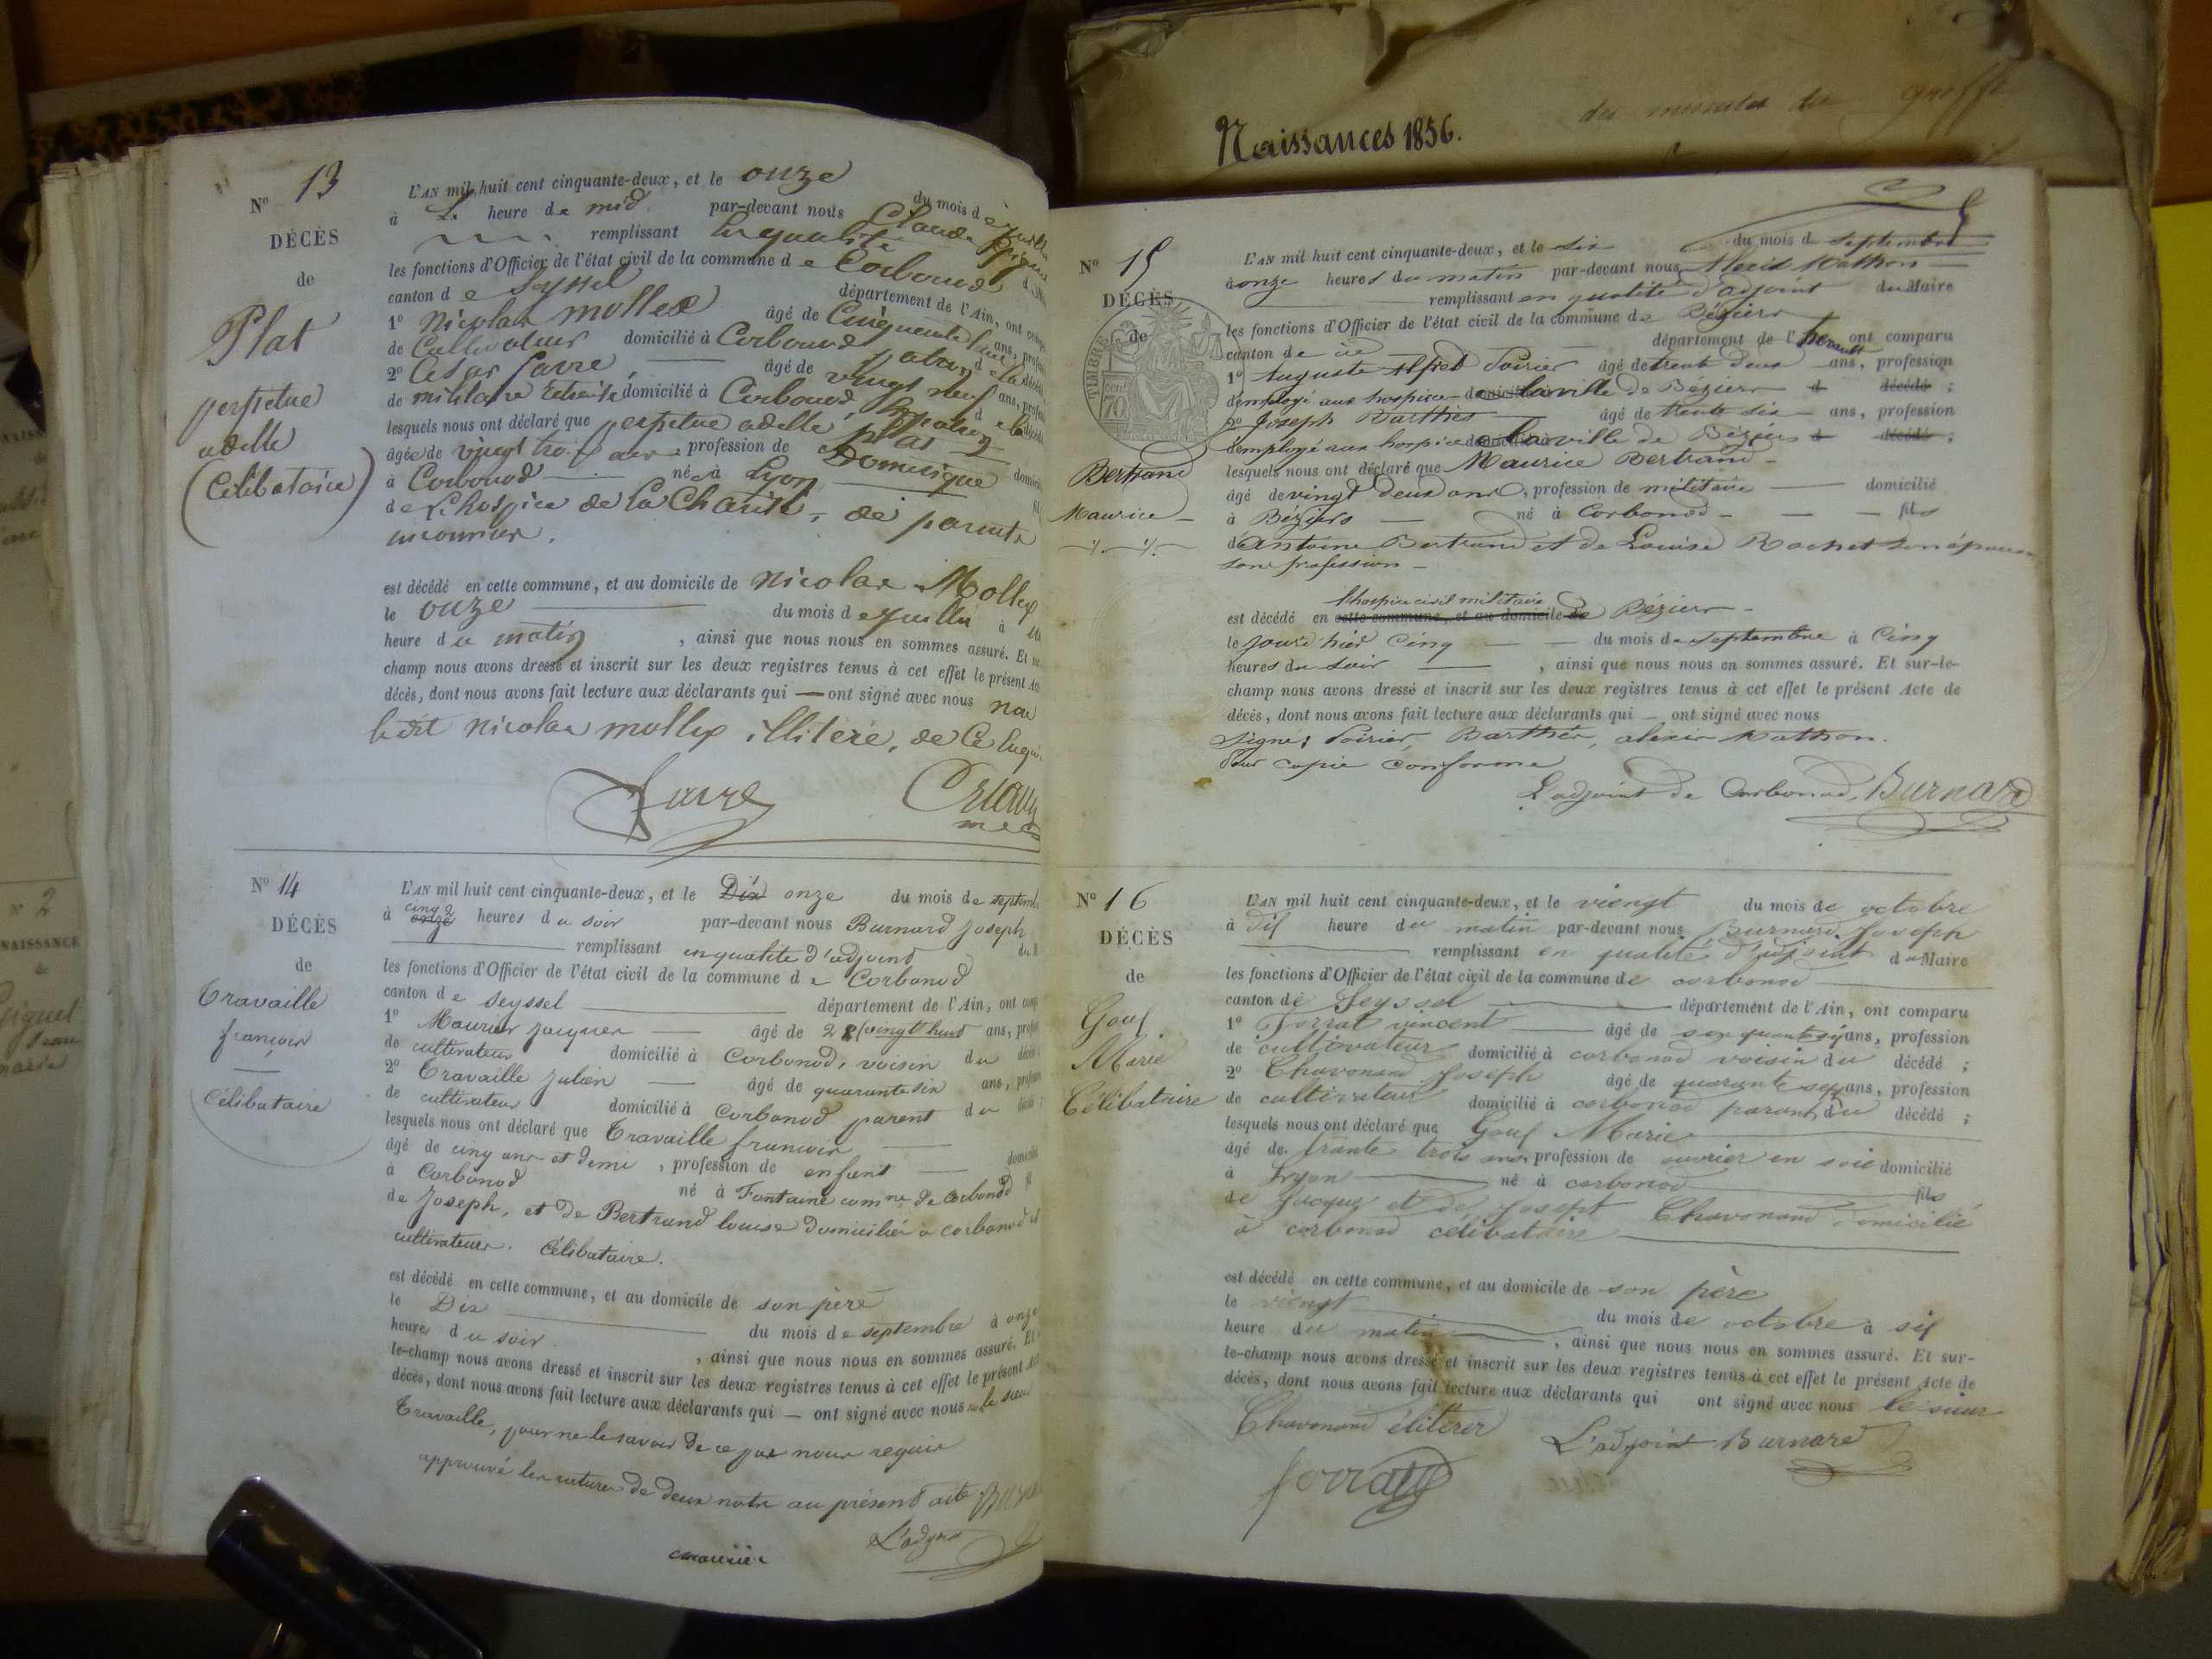 Naissances 1856.
du greffe
N° 13
DÉCÈS
de
Plat
perpetue
adelle
(Célibataire)
L'AN mil huit cent cinquante-deux, et le onze du mois de
à heure de par-devant nous Claude
remplissant
les fonctions d'Officier de l'état civil de la commune de Corbonod
canton de Seyssel département de l'Ain, ont
1° Nicolas mollex âgé de Cinquante ans,
de Cultivateur domicilié à Corbonod
2° César favre âgé de vingt neuf ans,
de militaire retraité domicilié à Corbonod,
lesquels nous ont déclaré que perpetue adelle plat
âgée de vingt trois ans profession de Domestique
à Corbonod née à Lyon
de L'hospice de la Charité, de parents
inconnus.
est décédé en cette commune, et au domicile de nicolas Mollex
le onze du mois de juillet à
heure du matin , ainsi que nous nous en sommes assuré. Et
champ nous avons dressé et inscrit sur les deux registres tenus à cet effet le présent
décès, dont nous avons fait lecture aux déclarants qui — ont signé avec nous non
nicolas mollex illitéré, de Ce
favre
N° 14
DÉCÈS
de
Travaille
françois
Célibataire
L'AN mil huit cent cinquante-deux, et le Dix onze du mois de
à onze cinq heures du soir par-devant nous Burnard Joseph
remplissant en qualité d'adjoint
les fonctions d'Officier de l'état civil de la commune de Corbonod
canton de Seyssel département de l'Ain, ont
1° Maurier Jacques âgé de 28 (vingt huit ans,
de cultivateur domicilié à Corbonod, voisin du
2° Travaille Julien âgé de quarante six ans,
de cultivateur domicilié à Corbonod parent du
lesquels nous ont déclaré que Travaille françois
âgé de cinq ans et demi , profession de enfant
à Corbonod né à Fontaine comne de Corbonod
de Joseph, et de Bertrand louise domiciliés à corbonod
cultivateurs. Célibataire.
est décédé en cette commune, et au domicile de son père
le Dix du mois de septembre à onze
heures du soir , ainsi que nous nous en sommes assuré. Et
le-champ nous avons dressé et inscrit sur les deux registres tenus à cet effet le présent
décès, dont nous avons fait lecture aux déclarants qui — ont signé avec nous
Travaille, pour ne le savoir de ce que nous requis
approuvé les ratures de deux mots au présent acte
L'adjoint
maurier
N° 15
DÉCÈS
de
TIMBRE
70
Bertrand
Maurice
L'AN mil huit cent cinquante-deux, et le six du mois de septembre
à onze heures du matin par-devant nous Alexis Mathon
remplissant en qualité d'adjoint du Maire
les fonctions d'Officier de l'état civil de la commune de Béziers
canton de département de l'hérault ont comparu
1° Auguste Alfred Poirier âgé de trente deux ans, profession
d'employé aux hospices de la ville de Béziers décédé ;
2° Joseph Barthès âgé de trente six ans, profession
d'employé aux hospices de la ville de Béziers décédé ;
lesquels nous ont déclaré que Maurice Bertrand
âgé de vingt deux ans, profession de militaire domicilié
à Béziers né à Corbonod fils
d'Antoine Bertrand et de Louise Rochet son épouse
sans profession
l'hospice civil militaire
est décédé en cette commune, et au domicile de Béziers
le jour d'hier cinq du mois de septembre à Cinq
heures du soir , ainsi que nous nous en sommes assuré. Et sur-le-
champ nous avons dressé et inscrit sur les deux registres tenus à cet effet le présent Acte de
décès, dont nous avons fait lecture aux déclarants qui — ont signé avec nous
Signé: Poirier, Barthès, alexis Mathon.
Pour copie conforme
L'adjoint de Corbonod, Burnard
N° 16
DÉCÈS
de
Marie
Célibataire
L'AN mil huit cent cinquante-deux, et le viengt du mois de octobre
à heure du matin par-devant nous Burnard Joseph
remplissant en qualité d'adjoint du Maire
les fonctions d'Officier de l'état civil de la commune de corbonod
canton de Seyssel département de l'Ain, ont comparu
1° Forrat vincent âgé de ans, profession
de cultivateur domicilié à corbonod voisin du décédé ;
2° Chavonand Joseph âgé de quarante sept ans, profession
de cultivateur domicilié à corbonod parant du décédé ;
lesquels nous ont déclaré que Marie
âgé de trante trois ans profession de ouvrier en soie domicilié
à Lyon né à corbonod fils
de Jacque et de Josept Chavonand domicilié
à corbonod célibataire
est décédé en cette commune, et au domicile de son père
le viengt du mois de octobre à
heure du matin , ainsi que nous nous en sommes assuré. Et sur-
le-champ nous avons dressé et inscrit sur les deux registres tenus à cet effet le présent Acte de
décès, dont nous avons fait lecture aux déclarants qui ont signé avec nous le sieur
Chavonand élitérer L'adjoint Burnard
forrat